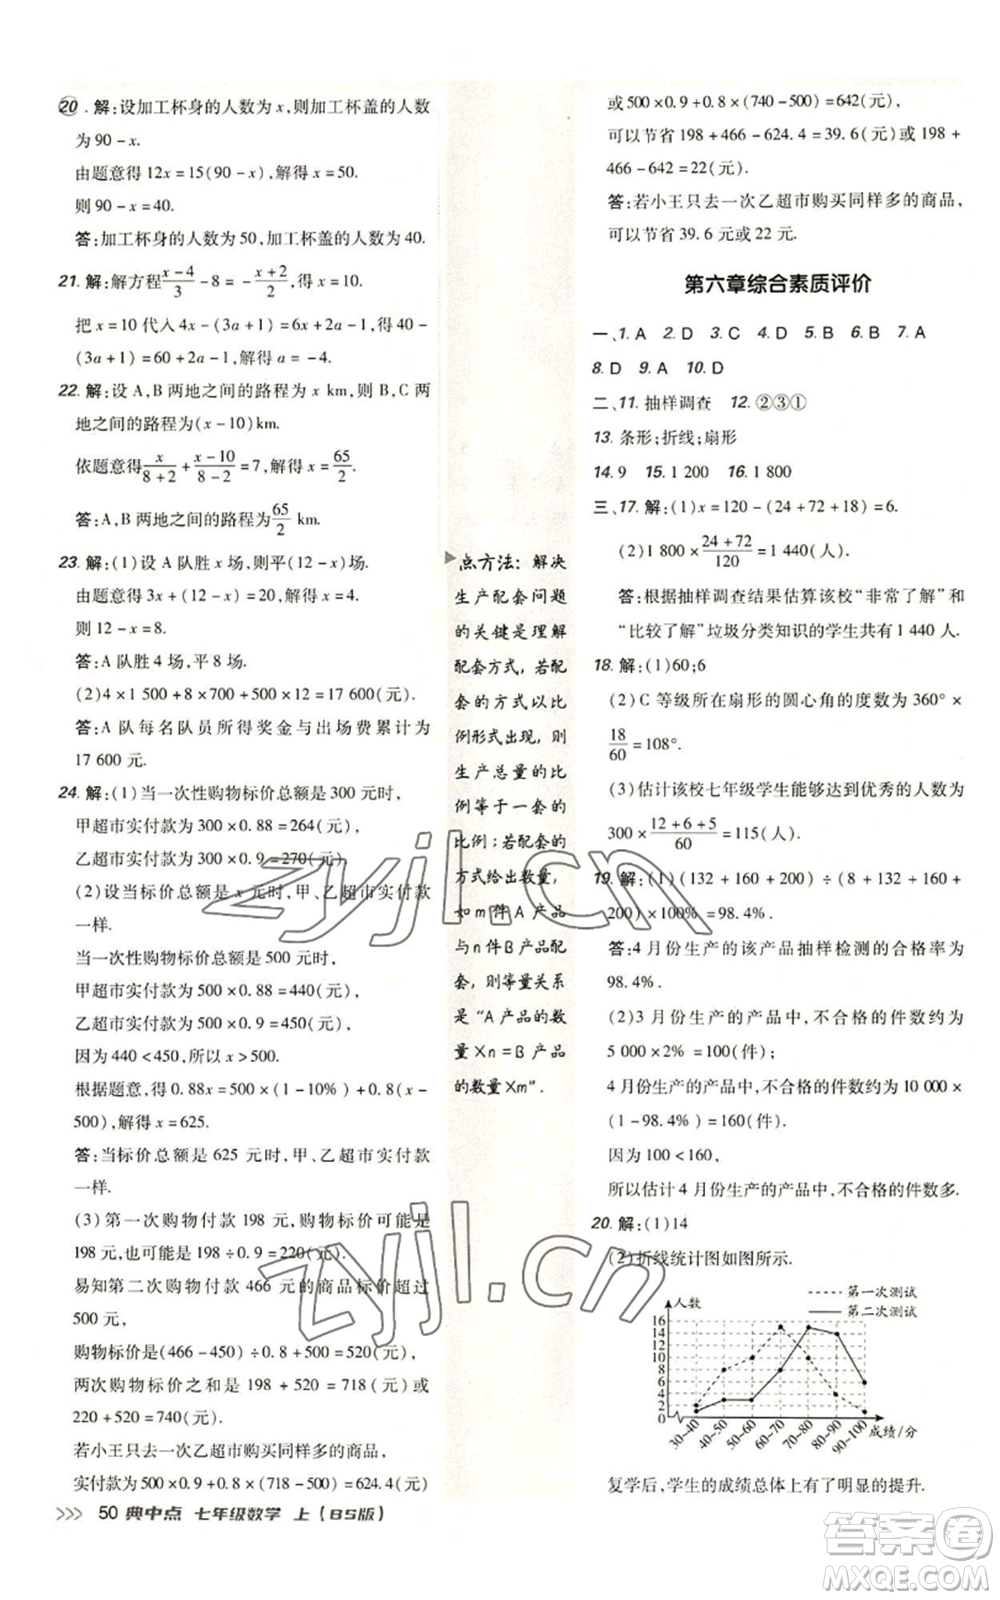 20. 解:设加工杯身的人数为 x,则加工杯盖的人数
为 90－x.
由题意得 12x＝15(90－x),解得 x＝50.
则 90－x＝40.
答:加工杯身的人数为 50,加工杯盖的人数为 40.
21. 解:解方程 (x－4)/3－8＝－(x＋2)/2,得 x＝10.
把 x＝10 代入 4x－(3a＋1)＝6x＋2a－1,得 4×10－
(3a＋1)＝60＋2a－1,解得 a＝－4.
22. 解:设 A,B 两地之间的路程为 x km,则 B,C 两
地之间的路程为(x－10)km.
依题意得 x/(8＋2)＋(x－10)/(8－2)＝7,解得 x＝65/2.
答:A,B 两地之间的路程为 65/2 km.
23. 解:(1)设 A 队胜 x 场,则平(12－x)场.
由题意得 3x＋(12－x)＝20,解得 x＝4.
则 12－x＝8.
答:A 队胜 4 场,平 8 场.
(2)4×1 500＋8×700＋500×12＝17 600(元).
答:A 队每名队员所得奖金与出场费累计为
17 600 元.
24. 解:(1)当一次性购物标价总额是 300 元时,
甲超市实付款为 300×0.88＝264(元),
乙超市实付款为 300×0.9＝270(元).
(2)设当标价总额是 x 元时,甲、乙超市实付款
一样.
当一次性购物标价总额是 500 元时,
甲超市实付款为 500×0.88＝440(元),
乙超市实付款为 500×0.9＝450(元),
因为 440<450,所以 x>500.
根据题意,得 0.88x＝500×(1－10%)＋0.8(x－
500),解得 x＝625.
答:当标价总额是 625 元时,甲、乙超市实付款
一样.
(3)第一次购物付款 198 元,购物标价可能是
198 元,也可能是 198÷0.9＝220(元),
易知第二次购物付款 466 元的商品标价超过
500 元,
购物标价是(466－450)÷0.8＋500＝520(元),
两次购物标价之和是 198＋520＝718(元)或
220＋520＝740(元).
若小王只去一次乙超市购买同样多的商品,
实付款为 500×0.9＋0.8×(718－500)＝624.4(元)
点方法：解决
生产配套问题
的关键是理解
配套方式，若配
套的方式以比
例形式出现，则
生产总量的比
例等于一套的
比例；若配套的
方式给出数量，
如 m 件 A 产品
与 n 件 B 产品配
套，则等量关系
是“A 产品的数
量×n＝B 产品
的数量×m”.
或 500×0.9＋0.8×(740－500)＝642(元),
可以节省 198＋466－624.4＝39.6(元)或 198＋
466－642＝22(元).
答:若小王只去一次乙超市购买同样多的商品,
可以节省 39.6 元或 22 元.
第六章综合素质评价
一、1. A 2. D 3. C 4. D 5. B 6. B 7. A
8. D 9. A 10. D
二、11. 抽样调查 12. ②③①
13. 条形;折线;扇形
14. 9 15. 1 200 16. 1 800
三、17. 解:(1)x＝120－(24＋72＋18)＝6.
(2)1 800×(24＋72)/120＝1 440(人).
答:根据抽样调查结果估算该校“非常了解”和
“比较了解”垃圾分类知识的学生共有 1 440 人.
18. 解:(1)60;6
(2)C 等级所在扇形的圆心角的度数为 360°×
18/60＝108°.
(3)估计该校七年级学生能够达到优秀的人数为
300×(12＋6＋5)/60＝115(人).
19. 解:(1)(132＋160＋200)÷(8＋132＋160＋
200)×100%＝98.4%.
答:4 月份生产的该产品抽样检测的合格率为
98.4%.
(2)3 月份生产的产品中,不合格的件数约为
5 000×2%＝100(件);
4 月份生产的产品中,不合格的件数约为 10 000×
(1－98.4%)＝160(件).
因为 100<160,
所以估计 4 月份生产的产品中,不合格的件数多.
20. 解:(1)14
(2)折线统计图如图所示.
第一次测试
第二次测试
人数
16
14
12
10
8
6
4
2
0
30~40 40~50 50~60 60~70 70~80 80~90 90~100 成绩/分
复学后,学生的成绩总体上有了明显的提升.
50 典中点 七年级数学 上(BS版)
zyjl.cn
zyjl.cn
答案圈
MXQE.COM